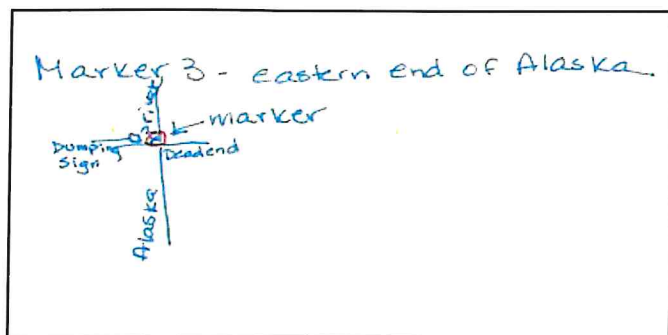 Marker 3 - eastern end of Alaska.
marker
Dumping
Sign
Deadend
Alaska